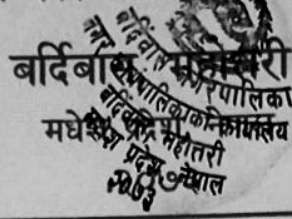 बर्दिबास महोत्तरी
मधेश प्रदेश
बर्दिबास नगरपालिका
नगरपालिकाको कार्यालय
बर्दिबास महोत्तरी
प्रदेश नेपाल